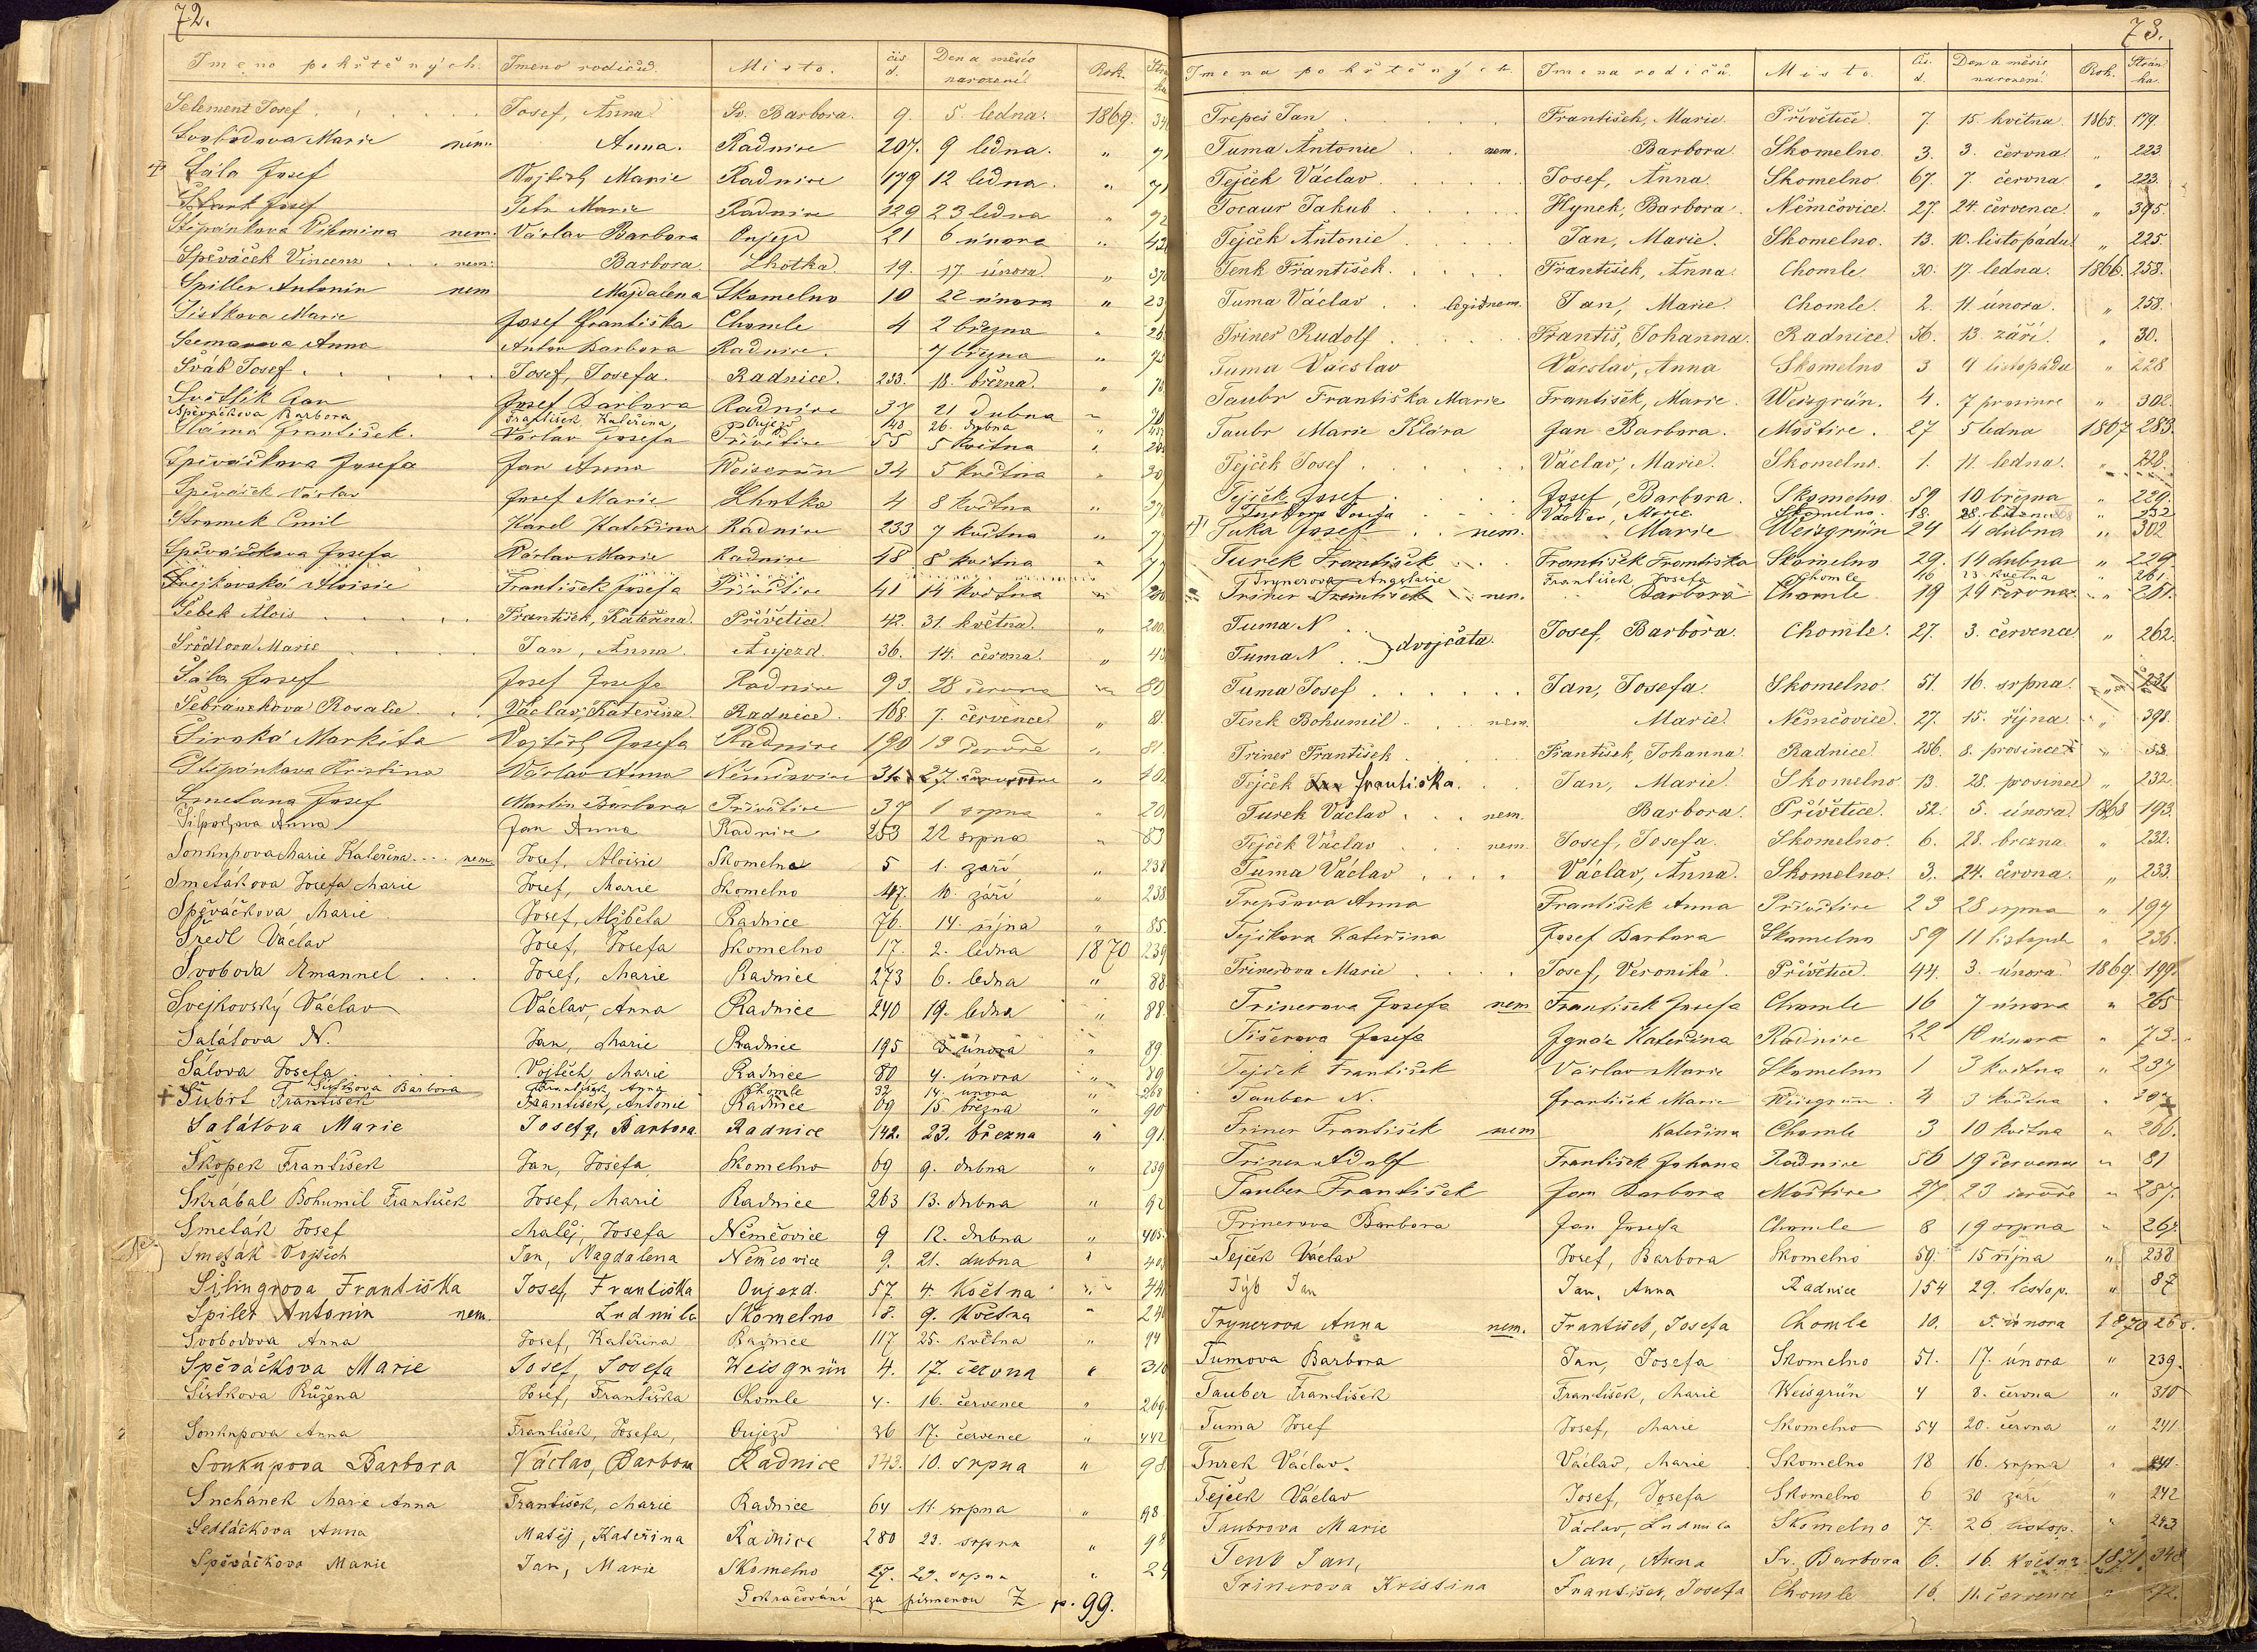 72.
Jmeno pokřtěných. Jmeno rodičů. Místo. čís d. Den a měsíc narození. Rok. Strá ka
Selement Josef Josef, Anna Sv. Barbora. 9. 5. ledna. 1869. 34
Svobodova Marie nem. Anna. Radnice 207. 9 ledna. " 71
Šála Josef Vojtěch Marie Radnice 179 12 ledna. " 71
Štark Josef Petr Marie Radnice 129 23 ledna " 72
Štěpánkova Vilemina nem. Václav Barbora Oujezd 21 6 února " 43
Spěváček Vincenz nem. Barbora Lhotka 19. 17. února. " 37
Spiller Antonín nem Majdalena Skomelno 10 22 února " 23
Šistkova Marie Josef Františka Chomle 4 2 března " 26
Seemanova Anna Anton Barbora Radnice. 7 března " 75
Šváb Josef Josef, Josefa. Radnice. 233. 18. března. " 76
Světlík Jan Josef Barbora Radnice 37 21 dubna "
Spěváčkova Barbora František, Kateřina Oujezd 148 26. dubna "
Sláma František. Václav Josefa Přívětice 55 5 května "
Spěváčkova Josefa Jan Anna Weisgrün 34 5 května " 30
Spěváček Václav Josef Marie Lhotka 4 8 května " 37
Stramek Emil Karel Kateřina Radnice 233 7 května " 7
Spěváčkova Josefa Václav Marie Radnice 48 8 května " 7
Švejkovská Aloisie František Josefa Přívětice 41 14 května " 200
Šebek Alois František, Kateřina. Přívětice. 42. 31. května. " 200.
Srödlova Marie Jan, Anna. Aujezd. 36. 14. června. " 43
Šála Josef Josef Josefa Radnice 93. 28 června " 80
Šebránekova Rosalie. Václav, Kateřina. Radnice. 168. 7. července. " 81.
Široká Markéta Vojtěch Josefa Radnice 190 13 července " 81.
Štěpánkova Kristina Václav Anna Němčovice 31 27. července " 40
Smetana Josef Martin Barbora Přívětice 37 1 srpna " 20
Anna Jan Anna Radnice 253 22 srpna " 83
Soukupova Marie Kateřina nem. Josef, Aloisie Skomelno 5 1. září " 238
Smetákova Josefa Marie Josef, Marie Skomelno 47. 10. září " 238
Spěváčkova Marie Josef, Alžběta Radnice 76. 14. října " 85.
Šredl Václav Josef, Josefa Skomelno 17. 2. ledna 1870 239
Svoboda Emanuel Josef, Marie Radnice 273 6. ledna " 88
Svejkovský Václav Václav, Anna Radnice 240 19. ledna " 88.
Salátova N. Jan, Marie Radnice 195 3 února " 89.
Šálova Josefa Vojtěch, Marie Radnice 80 4. února " 89
Šistkova Barbora František, Anna Chomle 32 14. února " 268
+ Šubrt František František, Antonie Radnice 69 15 března " 90
Salátova Marie Josef, Barbora. Radnice 142. 23. března " 91.
Škopek František Jan, Josefa Skomelno 69 9. dubna " 239
Škrábal Bohumil František Josef, Marie Radnice 263 13. dubna " 92
Smeták Josef Matěj, Josefa Němčovice 9 12. dubna " 405.
Smeták Vojtěch Jan, Magdalena Němčovice 9. 21. dubna " 40
Silingrova Františka Josef, Františka Oujezd. 57. 4. května " 44
Spilet Antonin nem. Ludmila Skomelno 18. 9. května " 24
Svobodova Anna Josef, Kateřina Radnice 117 25. května " 94
Spěváčkova Marie Josef, Josefa Weisgrün 4. 17. června " 310
Šistkova Růžena Josef, Františka Chomle 4. 16. července " 269
Soukupova Anna František, Josefa, Oujezd 36 17. července " 442
Soukupova Barbora Václav, Barbora Radnice 343. 10. srpna " 98.
Suchánek Marie Anna František, Marie Radnice 64 11. srpna " 98
Sedláčkova Anna Matěj, Kateřina Radnice 280 23. srpna " 98
Spěváčkova Marie Jan, Marie Skomelno 27. 29. srpna " 24
Pokračování za písmenou Z p. 99.
73.
Jmena pokřtěných Jmena rodičů. Místo. Čs. d. Den a měsíc narození. Rok. Strán ka.
Trepeš Jan František, Marie Přívětice. 7. 15. května. 1865. 179.
Tuma Antonie nem. Barbora. Skomelno. 3. 3. června. " 223.
Tejček Václav. Josef, Anna. Skomelno 67. 7. června. " 223.
Tocaur Jakub Hynek, Barbora. Němčovice. 27. 24. července. " 395.
Tejček Antonie Jan, Marie. Skomelno. 13. 10. listopádu. " 225.
Tenk František. František, Anna. Chomle 30. 17. ledna. 1866. 258.
Tuma Václav legitnem. Jan, Marie. Chomle. 2. 11. února. " 258.
Triner Rudolf Františ, Johanna. Radnice. 56. 13. září. " 30.
Tuma Václav Václav, Anna Skomelno 3 9 listopadu " 228
Taubr Františka Marie František, Marie. Weisgrün. 4. 7 prosince " 302.
Taubr Marie Klára Jan Barbora. Moštice. 27 5 ledna 1867 283.
Tejček Josef Václav, Marie. Skomelno. 1. 11. ledna. " 228.
Tejček Josef Josef, Barbora. Skomelno. 59 10 března " 229.
Josefa Václav, Marie. Skomelno. 18. 28. března " 232
Tuka Josef nem. Marie Weisgrün 24 4 dubna " 302
Turek František František Františka Skomelno 29. 14 dubna " 229.
Trynerova Anastasie František, Josefa Chomle 16 23 května " 261
Triner František nem. Barbora Chomle 19 24 června " 261.
Tuma N.
Tuma N. } dvojčata. Josef, Barbora. Chomle. 27. 3. července " 262.
Tuma Josef Jan, Josefa. Skomelno. 51. 16. srpna. " 231
Tenk Bohumil. nem. Marie. Němčovice. 27. 15. října. " 398.
Triner František František, Johanna. Radnice. 256. 8. prosince " 53.
Tejček Jan Františka. Jan, Marie. Skomelno. 13. 28. prosince " 232.
Turek Václav nem. Barbora. Přívětice. 52. 5. února. 1868 193.
Tejček Václav nem. Josef, Josefa. Skomelno. 6. 28. března " 232.
Tuma Václav Václav, Anna. Skomelno. 3. 24. června. " 233.
Trepšova Anna František Anna Přívětice 23 28 srpna " 197
Tejčkova Kateřina Josef Barbora Skomelno 59 11 listopdu " 236.
Trinerova Marie Josef, Veronika. Přívětice. 44. 3. února. 1869. 199.
Trinerova Josefa nem František Josefa Chomle 16 7 února " 265
Tišerova Josefa Ignác Kateřina Radnice 22 18 února " 73.
Tejček František Václav Marie Skomelno 1 3 května " 237
Tauber N. František Marie Weisgrün. 4 3 května " 307
Triner František nem Kateřina Chomle 3 10 května " 266.
Triner Adolf František Johana Radnice 56 19 července " 81
Tauber František Jan Barbora Moštice 27 23 července " 287.
Trinerova Barbora Jan Josefa Chomle 8 19 srpna " 267
Tejček Václav Josef, Barbora Skomelno 59. 15 října " 238
Týb Jan Jan, Anna Radnice 154 29. listop. " 87
Trynerova Anna nem. František, Josefa Chomle 10. 5. února 1870 268.
Tumova Barbora Jan, Josefa Skomelno 51. 17. února " 239.
Tauber František František, Marie Weisgrün 4 8. června " 310
Tuma Josef Josef, Marie Skomelno 54 20. června " 241
Turek Václav. Václav, Marie Skomelno 18 16. srpna " 241.
Tejček Václav Josef, Josefa Skomelno 6 30 září " 242
Taubrova Marie Václav, Ludmila Skomelno 7. 26 listop. " 243
Tenb Jan, Jan, Anna Sv. Barbora 6. 16. května 1871. 348
Trinerova Kristina František, Josefa Chomle 16. 11. července "